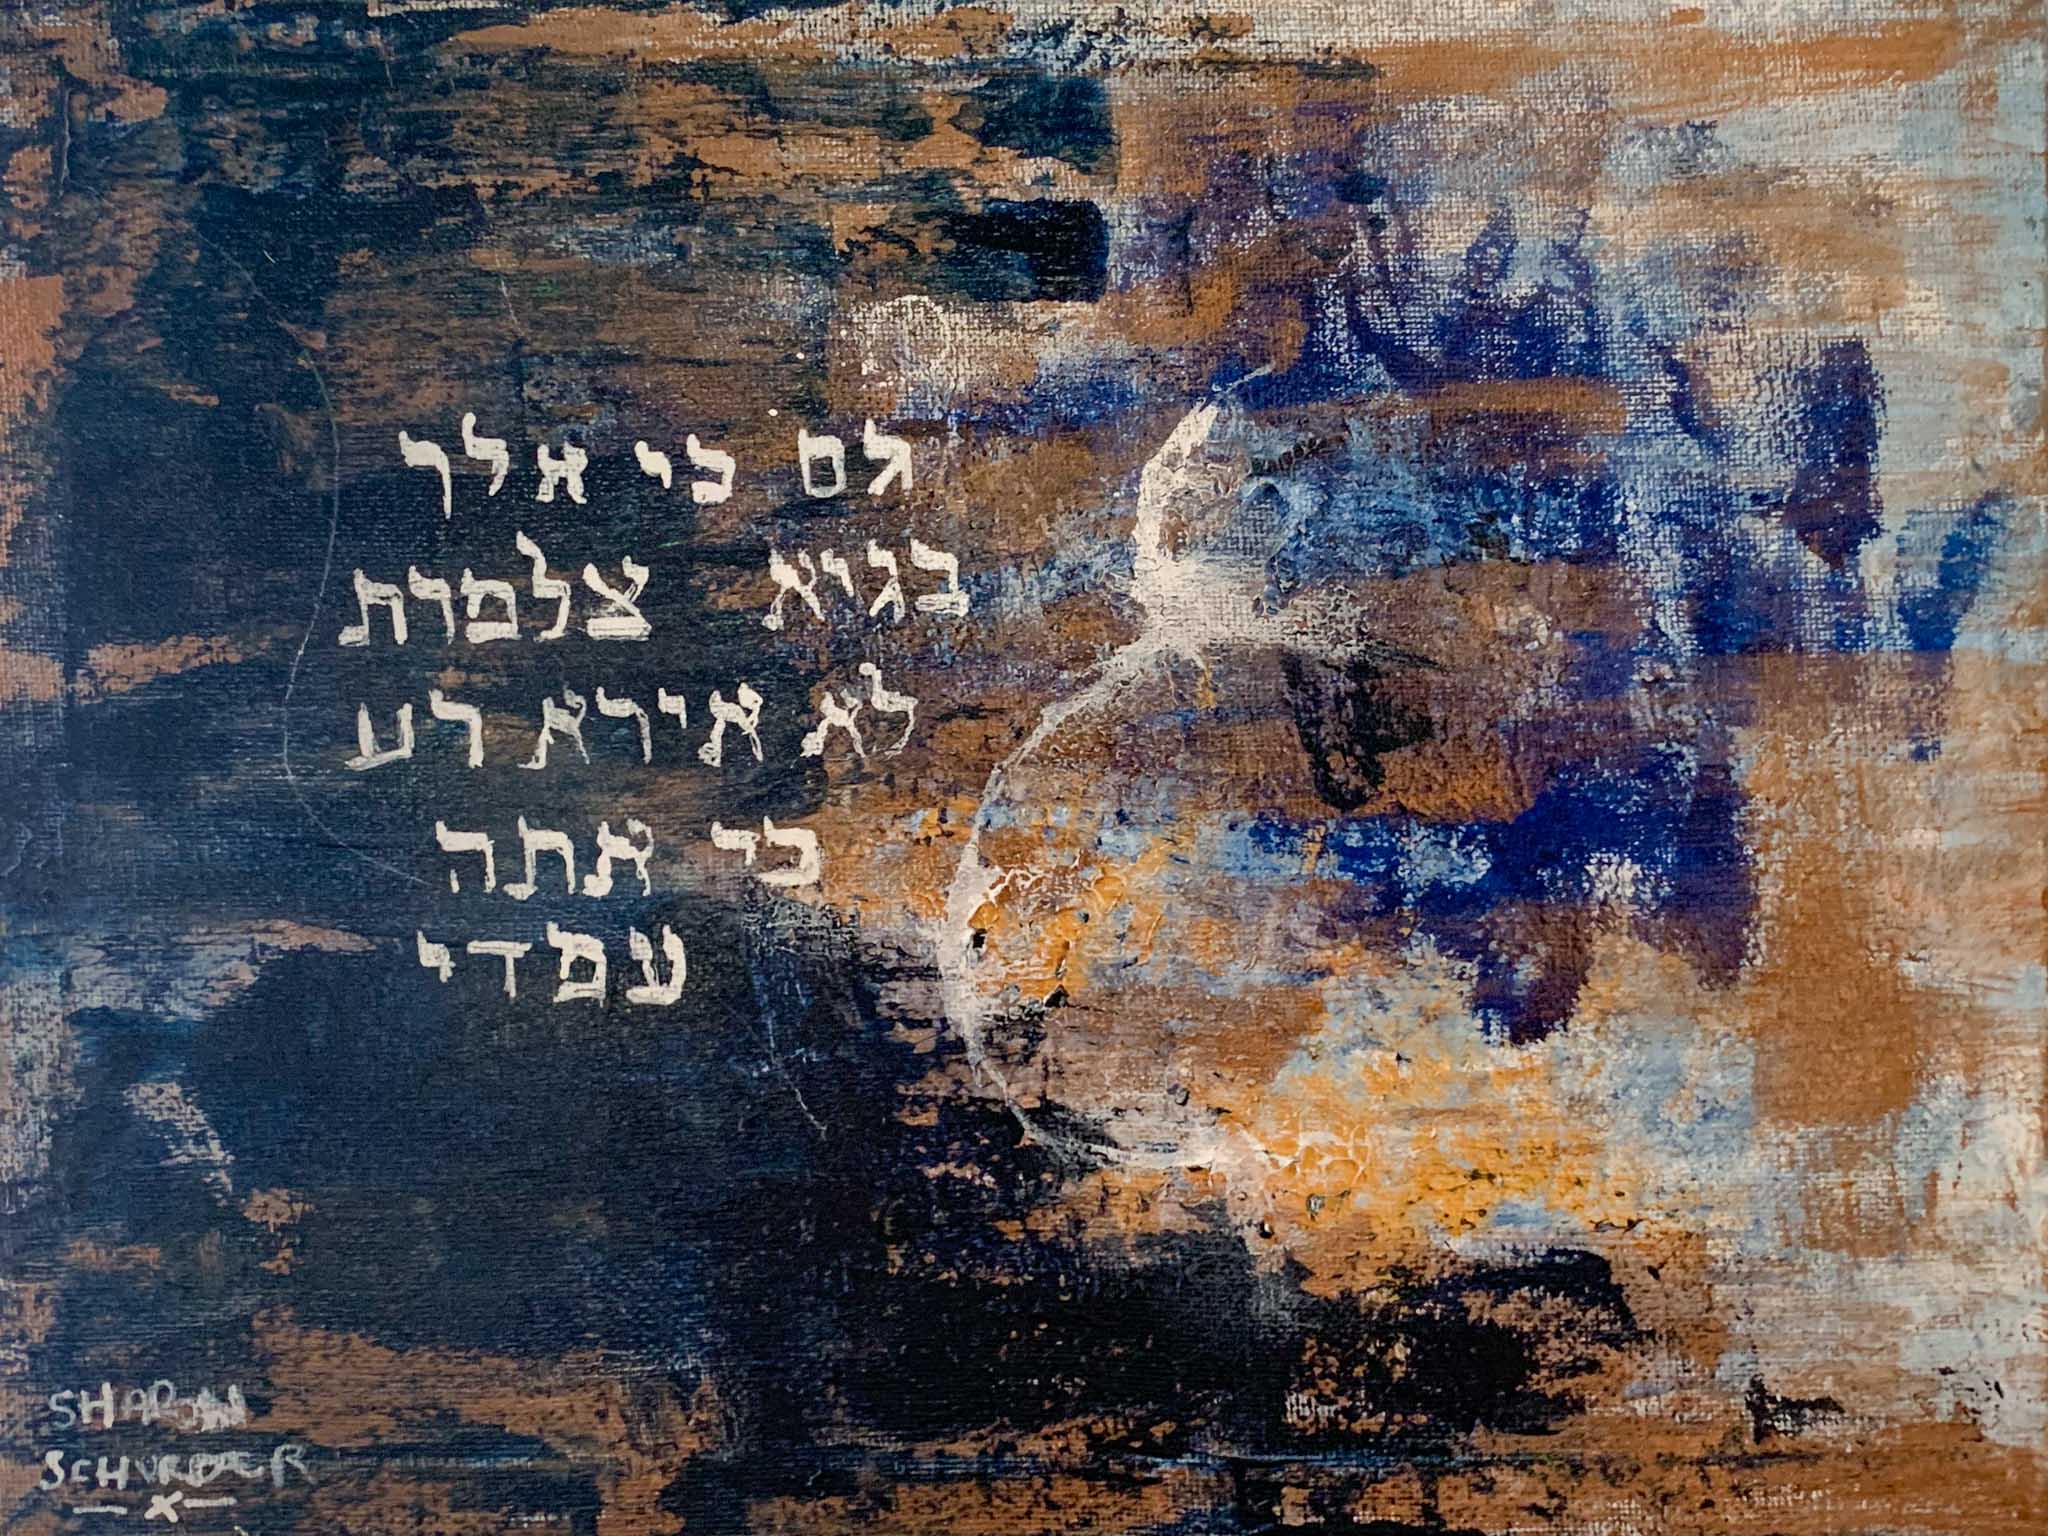 גם כי אלך
בגיא צלמות
לא אירא רע
כי אתה
עמדי
SHARON
SCHURDER